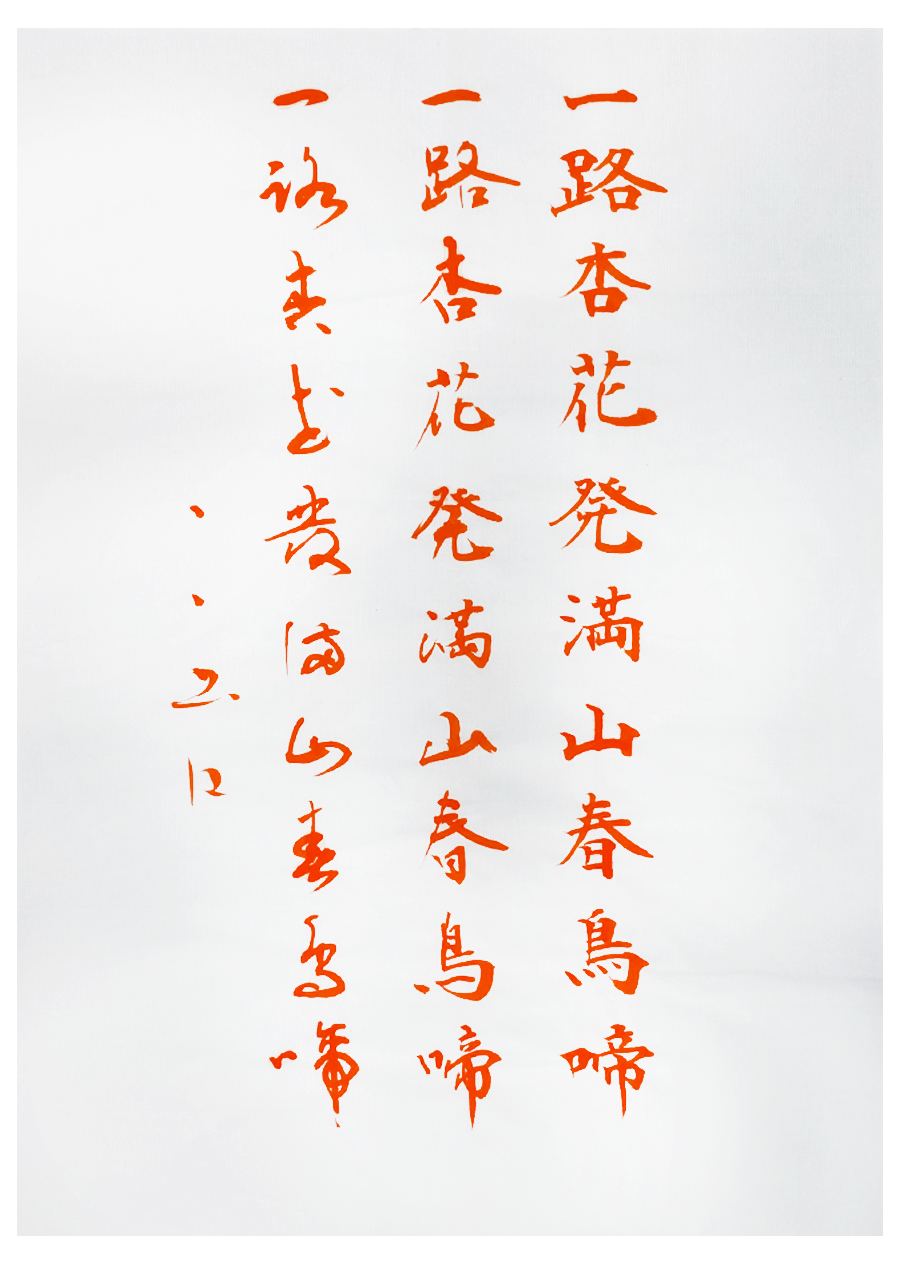 一路杏花発満山春鳥啼
一路杏花発満山春鳥啼
一路杏花発満山春鳥啼